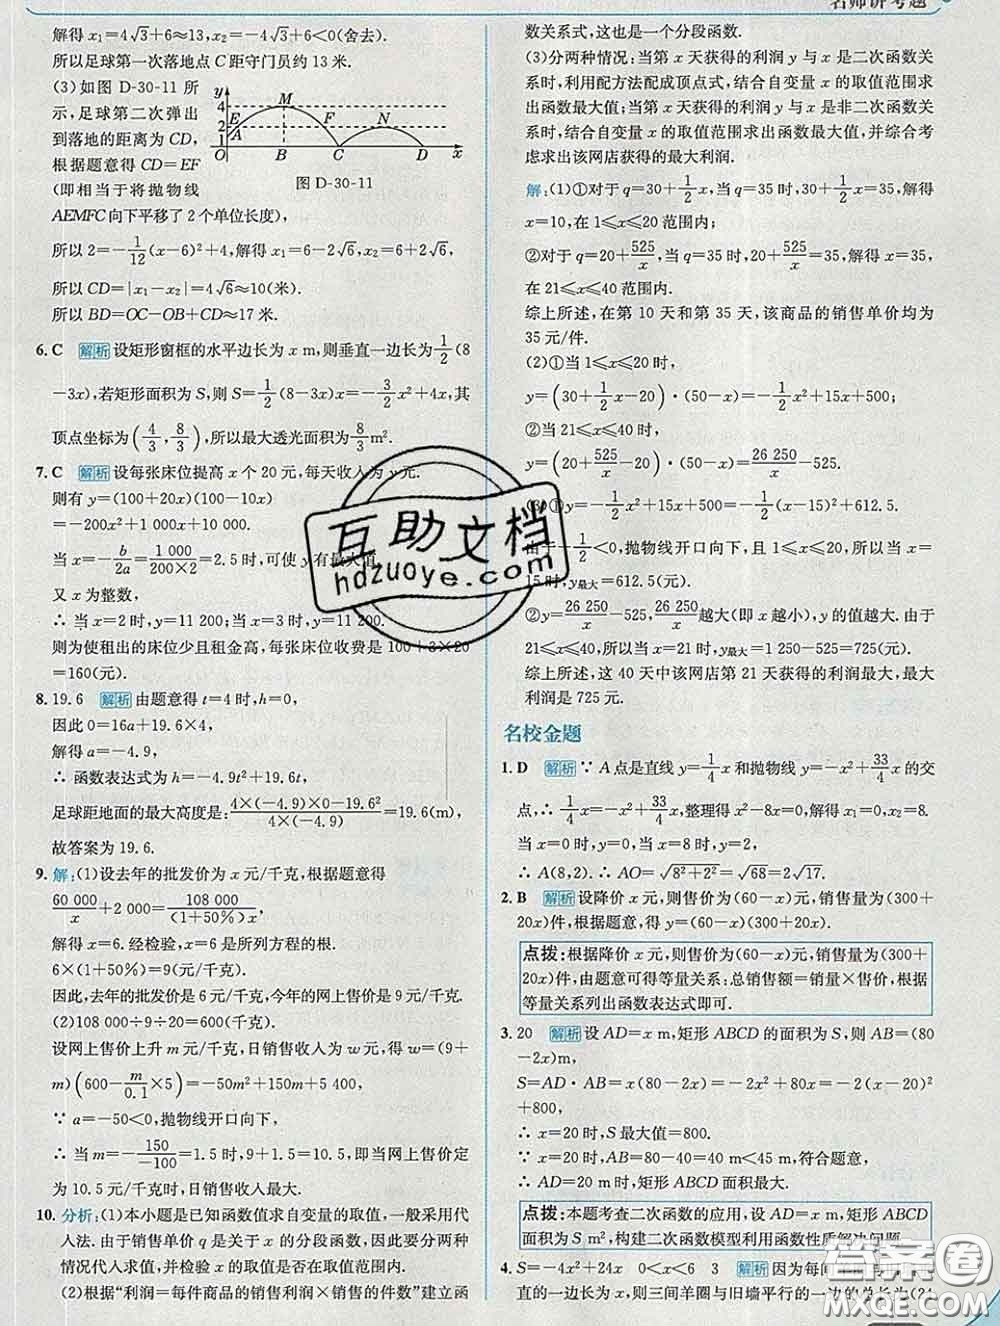 名师讲考题
解得 x₁=4√3+6≈13,x₂=-4√3+6<0(舍去).
所以足球第一次落地点 C 距守门员约 13 米.
(3)如图 D-30-11 所
示,足球第二次弹出
到落地的距离为 CD,
根据题意得 CD=EF
(即相当于将抛物线
y
4
2
1
M
E
A
F
N
O
B
C
D
x
图 D-30-11
AEMFC 向下平移了 2 个单位长度),
所以 2=-1/12(x-6)²+4,解得 x₁=6-2√6,x₂=6+2√6,
所以 CD=|x₁-x₂|=4√6≈10(米).
所以 BD=OC-OB+CD≈17 米.
6. C 解析 设矩形窗框的水平边长为 x m,则垂直一边长为1/2(8
-3x),若矩形面积为 S,则 S=1/2(8-3x)x=-3/2x²+4x,其
顶点坐标为(4/3,8/3),所以最大透光面积为8/3m².
7. C 解析 设每张床位提高 x 个 20 元,每天收入为 y 元.
则有 y=(100+20x)(100-10x)
=-200x²+1 000x+10 000.
当 x=-b/2a=1 000/200×2=2.5 时,可使 y 有最大值.
又 x 为整数,
∴ 当 x=2 时,y=11 200;当 x=3 时,y=11 200.
则为使租出的床位少且租金高,每张床位收费是 100+3×20
=160(元).
8. 19.6 解析 由题意得 t=4 时,h=0,
因此 0=16a+19.6×4,
解得 a=-4.9,
∴ 函数表达式为 h=-4.9t²+19.6t,
足球距地面的最大高度是:4×(-4.9)×0-19.6²/4×(-4.9)=19.6(m),
故答案为 19.6.
9. 解:(1)设去年的批发价为 x 元/千克,根据题意得
60 000/x+2 000=108 000/(1+50%)x,
解得 x=6.经检验,x=6 是所列方程的根.
6×(1+50%)=9(元/千克).
因此,去年的批发价是 6 元/千克,今年的网上售价是 9 元/千克.
(2)108 000÷9÷20=600(千克).
设网上售价上升 m 元/千克,日销售收入为 w 元,得 w=(9+
m)(600-m/0.1×5)=-50m²+150m+5 400,
∵ a=-50<0,抛物线开口向下,
∴ 当 m=-150/-100=1.5 时,9+1.5=10.5,即当网上售价定
为 10.5 元/千克时,日销售收入最大.
10. 分析:(1)本小题是已知函数值求自变量的取值,一般采用代
人法.由于销售单价 q 是关于 x 的分段函数,因此要分两种
情况代入求值,并检验 x 的取值是否在取值范围内.
(2)根据“利润=每件商品的销售利润×销售的件数”建立函
数关系式,这也是一个分段函数.
(3)分两种情况:当第 x 天获得的利润 y 与 x 是二次函数关
系时,利用配方法配成顶点式,结合自变量 x 的取值范围求
出函数最大值;当第 x 天获得的利润 y 与 x 是非二次函数关
系时,结合自变量 x 的取值范围求出函数最大值,并综合考
虑求出该网店获得的最大利润.
解:(1)①对于 q=30+1/2x,当 q=35 时,30+1/2x=35,解得
x=10,在 1≤x≤20 范围内;
②对于 q=20+525/x,当 q=35 时,20+525/x=35,解得 x=35,
在 21≤x≤40 范围内.
综上所述,在第 10 天和第 35 天,该商品的销售单价均为
35 元/件.
(2)①当 1≤x≤20 时,
y=(30+1/2x-20)·(50-x)=-1/2x²+15x+500;
②当 21≤x≤40 时,
y=(20+525/x-20)·(50-x)=26 250/x-525.
(3)①y=-1/2x²+15x+500=-1/2(x-15)²+612.5.
由于-1/2<0,抛物线开口向下,且 1≤x≤20,所以当 x=
15 时,y最大=612.5(元).
②y=26 250/x-525,26 250/x越大(即 x 越小),y 的值越大.由于
21≤x≤40,所以当 x=21 时,y最大=1 250-525=725(元).
综上所述,这 40 天中该网店第 21 天获得的利润最大,最大
利润是 725 元.
名校金题
1. D 解析 ∵ A 点是直线 y=1/4x 和抛物线 y=-x²+33/4x 的交
点,∴ 1/4x=-x²+33/4x,整理得 x²-8x=0,解得 x₁=0,x₂=8.
当 x=0 时,y=0;当 x=8 时,y=2,
∴ A(8,2).∴ AO=√8²+2²=√68=2√17.
2. B 解析 设降价 x 元,则售价为(60-x)元,销售量为(300+
20x)件,根据题意,得 y=(60-x)(300+20x).
点拨:根据降价 x 元,则售价为(60-x)元,销售量为(300+
20x)件,由题意可得等量关系:总销售额=销量×售价,根据
等量关系列出函数表达式即可.
3. 20 解析 设 AD=x m,矩形 ABCD 的面积为 S,则 AB=(80
-2x)m,
S=AD·AB=x(80-2x)=-2x²+80x=-2(x-20)²
+800,
∴ x=20 时,S最大值=800.
∵ x=20 时,80-2x=80-40=40 m<45 m,符合题意,
∴ AD=20 m 时,矩形 ABCD 面积最大.
点拨:本题考查二次函数的应用,设 AD=x m,矩形 ABCD
面积为 S m²,构建二次函数模型利用函数性质解决问题.
4. S=-4x²+24x 0<x<6 3 解析 因为每间羊圈与旧墙垂
直的一边长为 x,则三间羊圈与旧墙平行的一边的总长为(24
互助文档
hdzuoye.com
答案圈
MXQE.COM